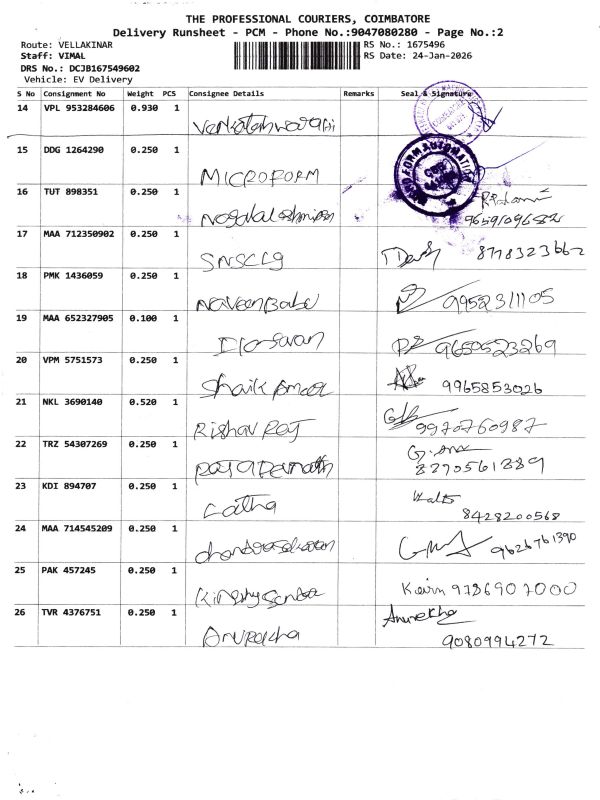 THE PROFESSIONAL COURIERS, COIMBATORE
Delivery Runsheet - PCM - Phone No.:9047080280 - Page No.:2
Route: VELLAKINAR RS No.: 1675496
Staff: VIMAL RS Date: 24-Jan-2026
DRS No.: DCJB167549602
Vehicle: EV Delivery
S No Consignment No Weight PCS Consignee Details Remarks Seal & Signature
14 VPL 953284606 0.930 1
15 DDG 1264290 0.250 1 MICROFORM
16 TUT 898351 0.250 1
17 MAA 712350902 0.250 1 SNSCLG 8778323662
18 PMK 1436059 0.250 1 NaveenBabu 9952311105
19 MAA 652327905 0.100 1 9650523269
20 VPM 5751573 0.250 1 Shaik Ameer 9965853026
21 NKL 3690140 0.520 1 Rishav Raj 9970760987
22 TRZ 54307269 0.250 1
23 KDI 894707 0.250 1 Latha 8428200568
24 MAA 714545209 0.250 1 chandrasekaran 9626761390
25 PAK 457245 0.250 1
26 TVR 4376751 0.250 1 Anurekha 9080994272